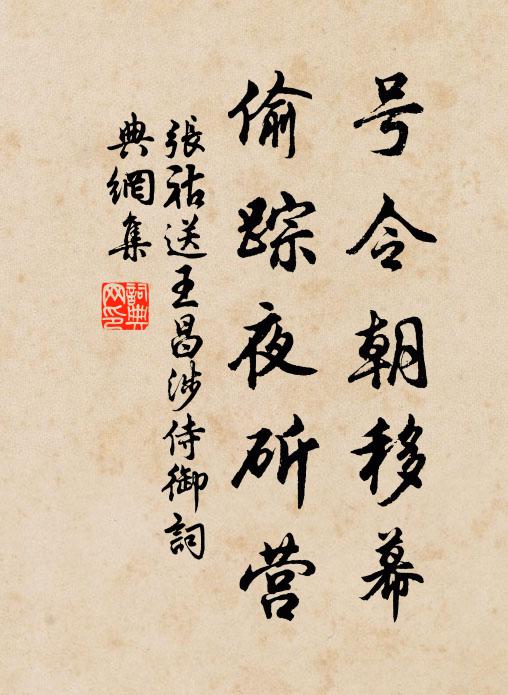 号令朝移幕
偷踪夜斫营
張祜送王昌涉侍御詞
典網集
詞典网印